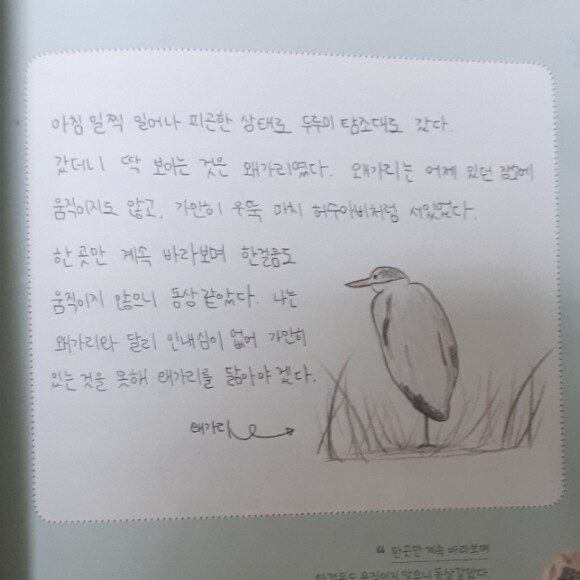 아침 일찍 일어나 피곤한 상태로 두루미 탐조대로 갔다.
갔더니 딱 보이는 것은 왜가리였다. 왜가리는 어제 있던 장소에
움직이지도 않고, 가만히 우뚝 마치 허수아비처럼 서있었다.
한 곳만 계속 바라보며 한걸음도
움직이지 않으니 동상같았다. 나는
왜가리와 달리 인내심이 없어 가만히
있는 것을 못해 왜가리를 닮아야 겠다.
왜가리
“ 한곳만 계속 바라보며
한걸음도 움직이지 않으니 동상같았다